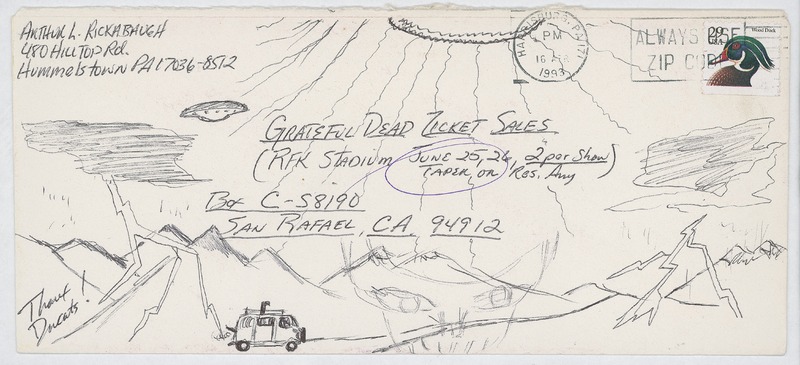 Arthur L. Rickabaugh
480 Hilltop Rd.
Hummelstown PA 17036-8512
HARRISBURG, PA 171
PM
16 APR
1993
ALWAYS USE
ZIP CODE
29
USA
Wood Duck
GRATEFUL DEAD TICKET SALES
(RFK STADIUM JUNE 25, 26, 2 per Show)
TAPER OR Res. Any
Box C-S8190
SAN RAFAEL, CA. 94912
Thanx
Ducats!